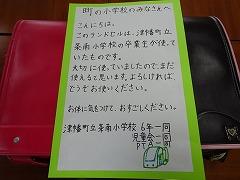 町の小学校のみなさんへ
こんにちは。
このランドセルは、津幡町立
条南小学校の卒業生が使っ
ていたものです。
大切に使っていましたので、まだ
使えると思います。よろしければ、
どうぞお使いください。
お体に気をつけて、おすごしください。
津幡町立条南小学校 6年一同
児童会一同
PTA一同